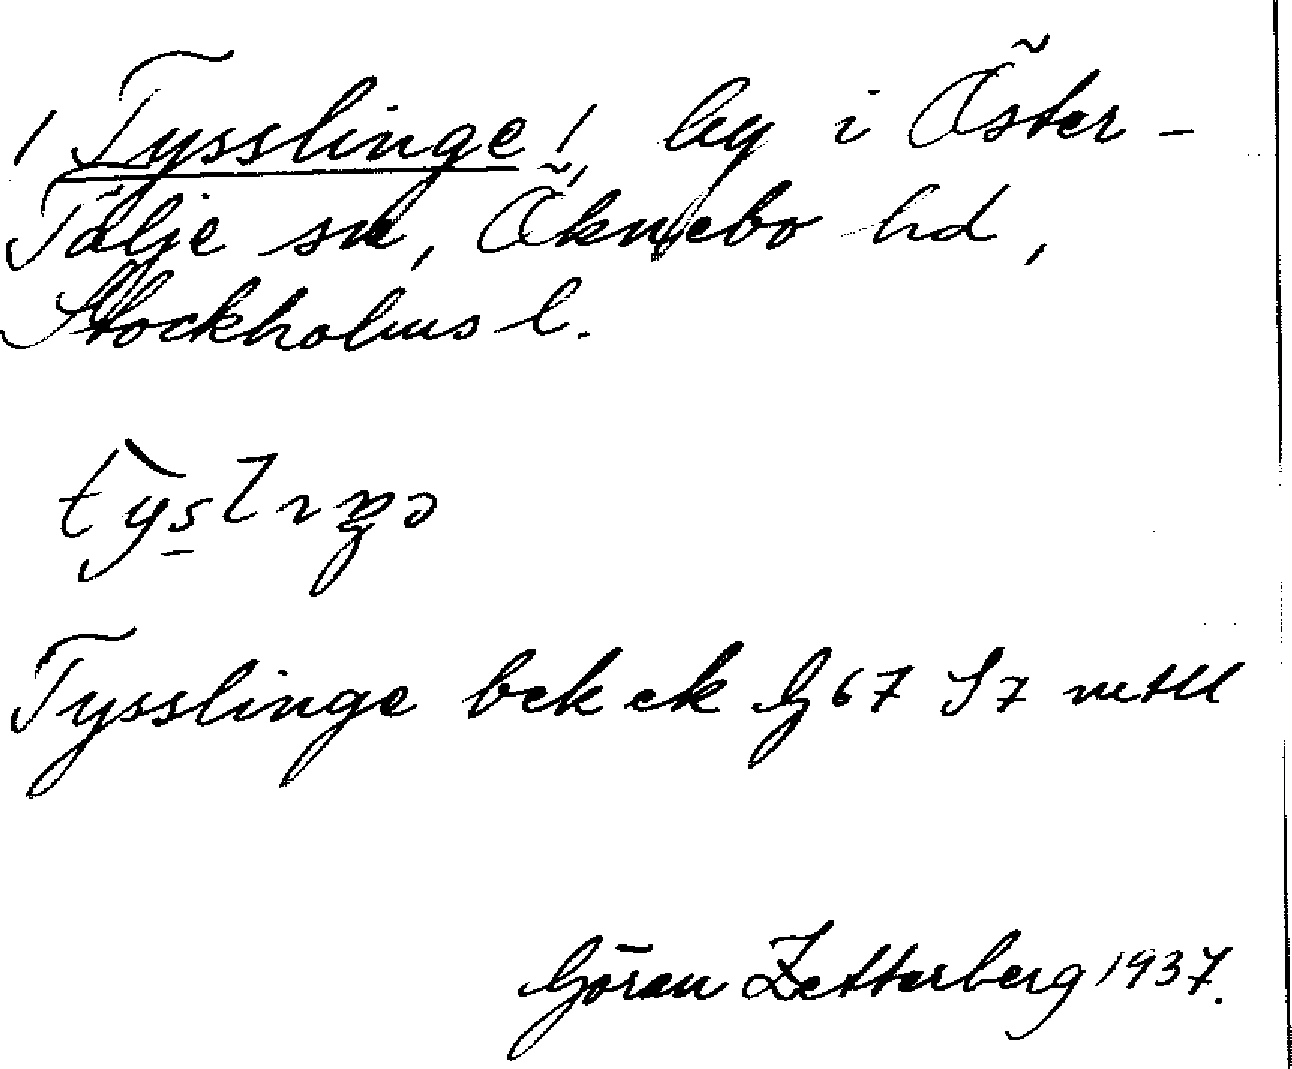 / Tysslinge /, by i Öster-
Tälje sn, Öknebo hd,
Stockholms l.
Tysslinge bek ek G 67 S 7 mtll
Göran Zetterberg 1937.